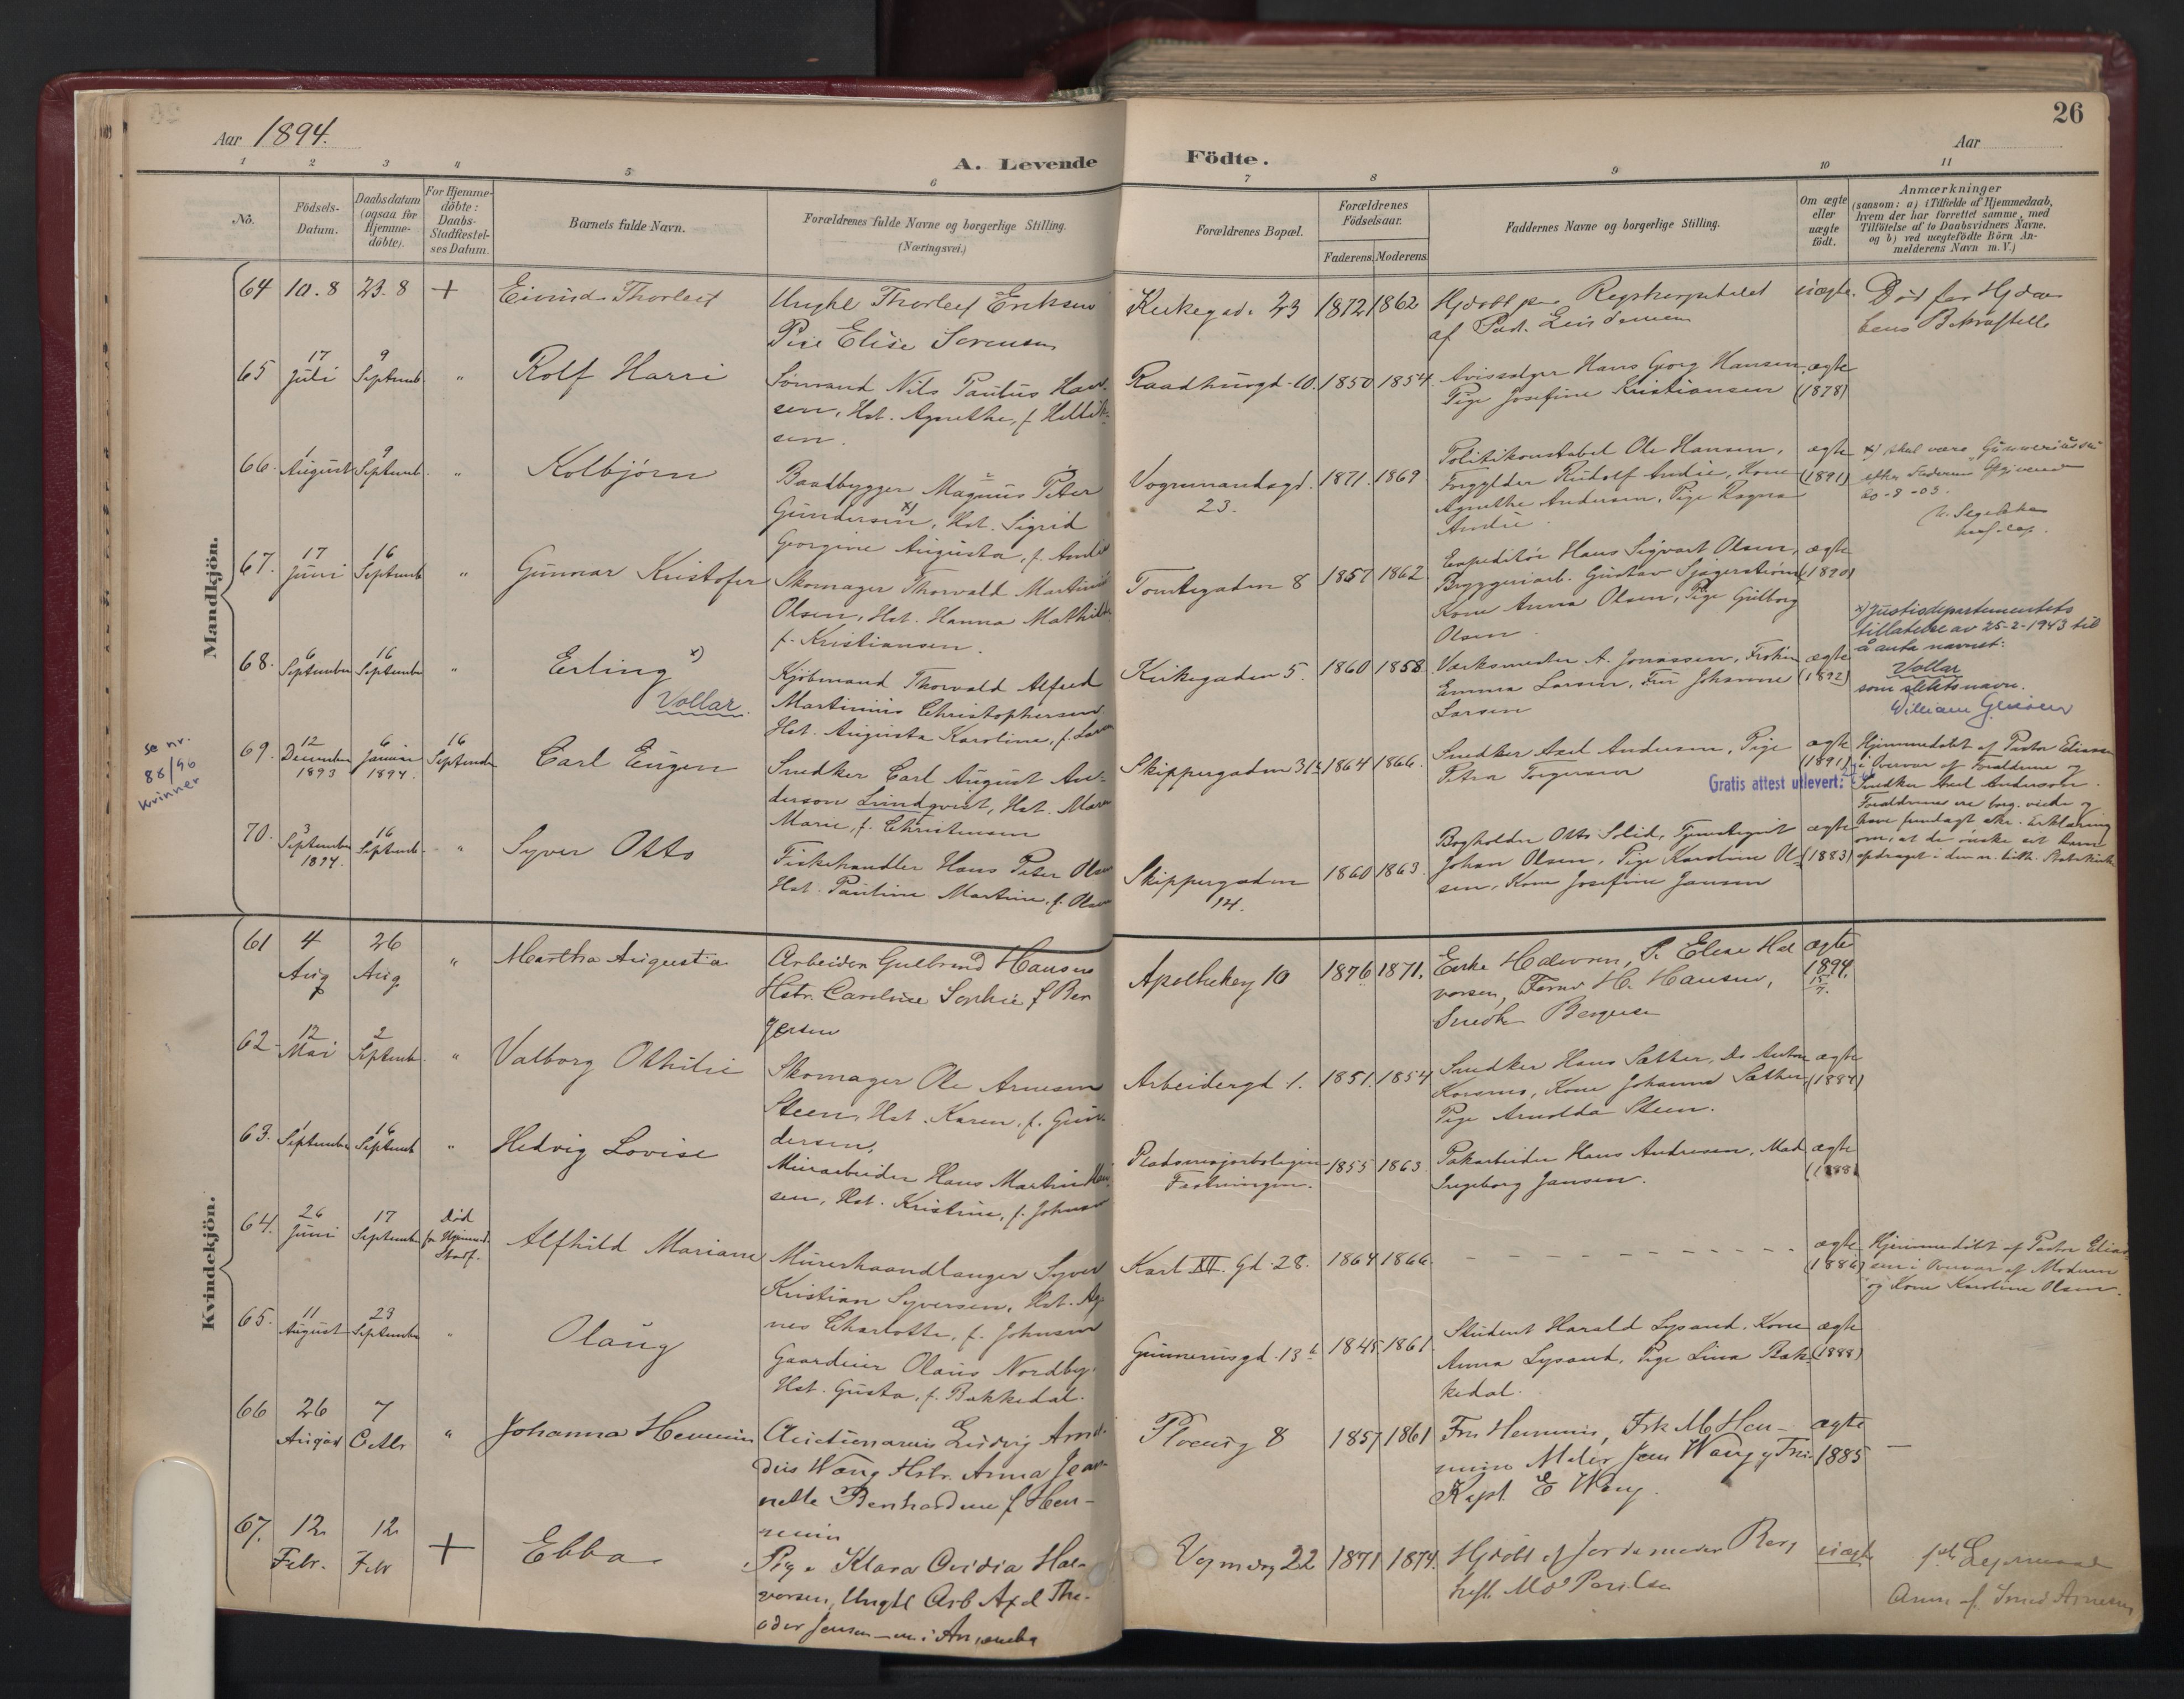 26
Aar 1894.
A. Levende Födte.
Aar
1 2 3 4 5 6 7 8 9 10 11
No.
Födsels-
Datum.
Daabsdatum
(ogsaa for
Hjemme-
döbte).
For Hjemme-
döbte:
Daabs-
Stadfæstel-
ses Datum.
Barnets fulde Navn.
Forældrenes fulde Navne og borgerlige Stilling.
(Næringsvei.)
Forældrenes Bopæl.
Forældrenes
Födselsaar.
Faderens. Moderens.
Faddernes Navne og borgerlige Stilling.
Om ægte
eller
uægte
födt.
Anmærkninger
(saasom: a) i Tilfælde af Hjemmedaab,
hvem der har forrettet samme, med
Tilföielse af to Daabsvidners Navne,
og b) ved uægtefödte Börn An-
melderens Navn m. V.)
Mandkjön.
64 10.8 23.8 + Eivind Thorleif
Ungkl Thorleif Eriksen
Pige Elise Sorensen
Kirkegade 23 1872 1862
Hjdöbt paa Rigshospitalet
af Past.
uægte.
Död før Hjdaa
bens Bekræftelse
65 17 Juli 9 Septemb. "
Rolf Harri
Sömand Nils Paulus Han-
sen, Hst. Agnethe, f. Hellik-
sen.
Raadhusgd. 10. 1850 1854.
Avissælger Hans Georg Hansen,
Pige Josefine Kristiansen
ægte
(1878)
66. 1 August 9 Septemb. "
Kolbjörn
Baadbygger Magnus Peter
Gundersen x), Hst. Sigrid
Georgine Augusta, f. André
Vognmandsgd. 23. 1871. 1869
Politikonstabel Ole Hansen,
Forgylder Rudolf André, Kone
Agnethe Andersen, Pige Ragna
André.
ægte
(1891)
x) skal være "Gunnerius
efter Faderens Opgivende
20-8-03.
67. 17 Juni 16 Septemb. "
Gunnar Kristofer
Skomager Thorvald Martinius
Olsen, Hst. Hanna Mathilde
f. Kristiansen.
Tomtegaden 8 1857 1862
Expeditör Hans Sigvart Olsen,
Bryggeriarb. Gustav Sjøgerström
Kone Anna Olsen, Pige Gulborg
Olsen
ægte
(1890)
68. 6 September 16 September "
Erling x)
Vollar.
Kjöbmand Thorvald Alfred
Martinius Christophersen
Hst. Augusta Karoline, f. Larsen
Kirkegaden 5. 1860 1858.
Værksmester A. Jonassen, Fröken
Emma Larsen, Fru Johanne
Larsen
ægte
(1892)
x) Justisdepartementets
tillatelse av 25-2-1943 til
å anta navnet:
Vollar
som slektsnavn.
se nr.
88/96
kvinner
69. 12 December 1893 6 Januar 1894. 16 September
Carl Eugen
Snedker Carl August An-
derson Lundqvist, Hst. Maren
Marie, f. Christensen
Skippergaden 31b 1864 1866.
Snedker Axel Andersen, Pige
Petra Torgersen
ægte
(1891)
Gratis attest utlevert:
Hjemmedöbt af Pastor Eliassen
i Overvær af Forældrene og
Snedker Axel Andersson.
Forældrene ere borg. viede og
have fremlagt skr. Erklæring
om, at de önske sit Barn
opdraget i den ev. luth. Statskirke
70. 3 September 1894. 16 Septemb. "
Syver Otto
Fiskehandler Hans Peter Olsen
Hst. Pauline Martine, f. Olsen
Skippergaden 14. 1860 1863.
Bogholder Otto Solid, Tjenestegut
Johan Olsen, Pige Karoline Ol-
sen, Kone Josefine Jansen
ægte
(1883)
Kvindekjön.
61 4 Aug 26 Aug. "
Martha Augusta
Arbeider Gulbrand Hansen
Hstr. Caroline Sophie f Ber
gersen
Apothekerg 10 1876 1871.
Enke Halvorsen, P. Elise Hal
vorsen, H. Hansen,
Snedk Bergersen
ægte
1894.
62. 12 Mai 2 Septemb. "
Valborg Othilie
Skomager Ole Arnesen
Steen, Hst. Karen, f. Gun-
dersen,
Arbeidergd. 1. 1851. 1854
Snedker Hans Sæther, Do Anton
Korsmo, Kone Johanne Sæther
Pige Arnolda Steen.
ægte
63. 1 September 16 Septemb "
Hedvig Lovise
Murarbeider Hans Martin Han-
sen, Hst. Kristine, f. Johnsen
Pladsmajorboligen
Fæstningen. 1855 1863.
Pakarbeider Hans Andresen, Mad
Ingeborg Jansen.
ægte
64. 26 Juni 17 September
Död
før Hjemmed.
Stadf.
Alfhild Mariane
Murerhaandlanger Syver
Kristian Syversen, Hst. Ag-
nes Charlotte, f. Johnsen
Karl XII. Gd. 28. 1864 1866.
ægte
(1886)
Hjemmedöbt af Pastor Elias-
sen i Overvær af Moderen
og Kone Karoline Olsen.
65. 11 August 23 September "
Olaug
Gaardeier Olaus Nordby.
Hst. Gusta, f. Bakkedal.
Gunnerusgd. 13b 1845. 1861.
Student Harald Lysand. Kone
Anna Lysand, Pige Lina Bak-
kedal.
ægte
(1888)
66 26 August 7 Octbr "
Johanna Hemmin
Auctionarius Ludvig Amn-
dus Wang Hstr. Anna Jean-
nette Bernhardine f Hem-
min
Ploensg 8 1857 1861
Fru Hemmin, Frk M Hem-
min Maler Jens Wang
Kapt. E Wang.
ægte
1885
67. 12 Febr. 12 Febr +
Ebba
Pige Klara Ovidia Hal-
vorsen, Ungkl Arb Axel The-
odor Jensen
Vognmdsg 22 1871 1874.
Hjdöbt af Jordemoder Berg
uægte